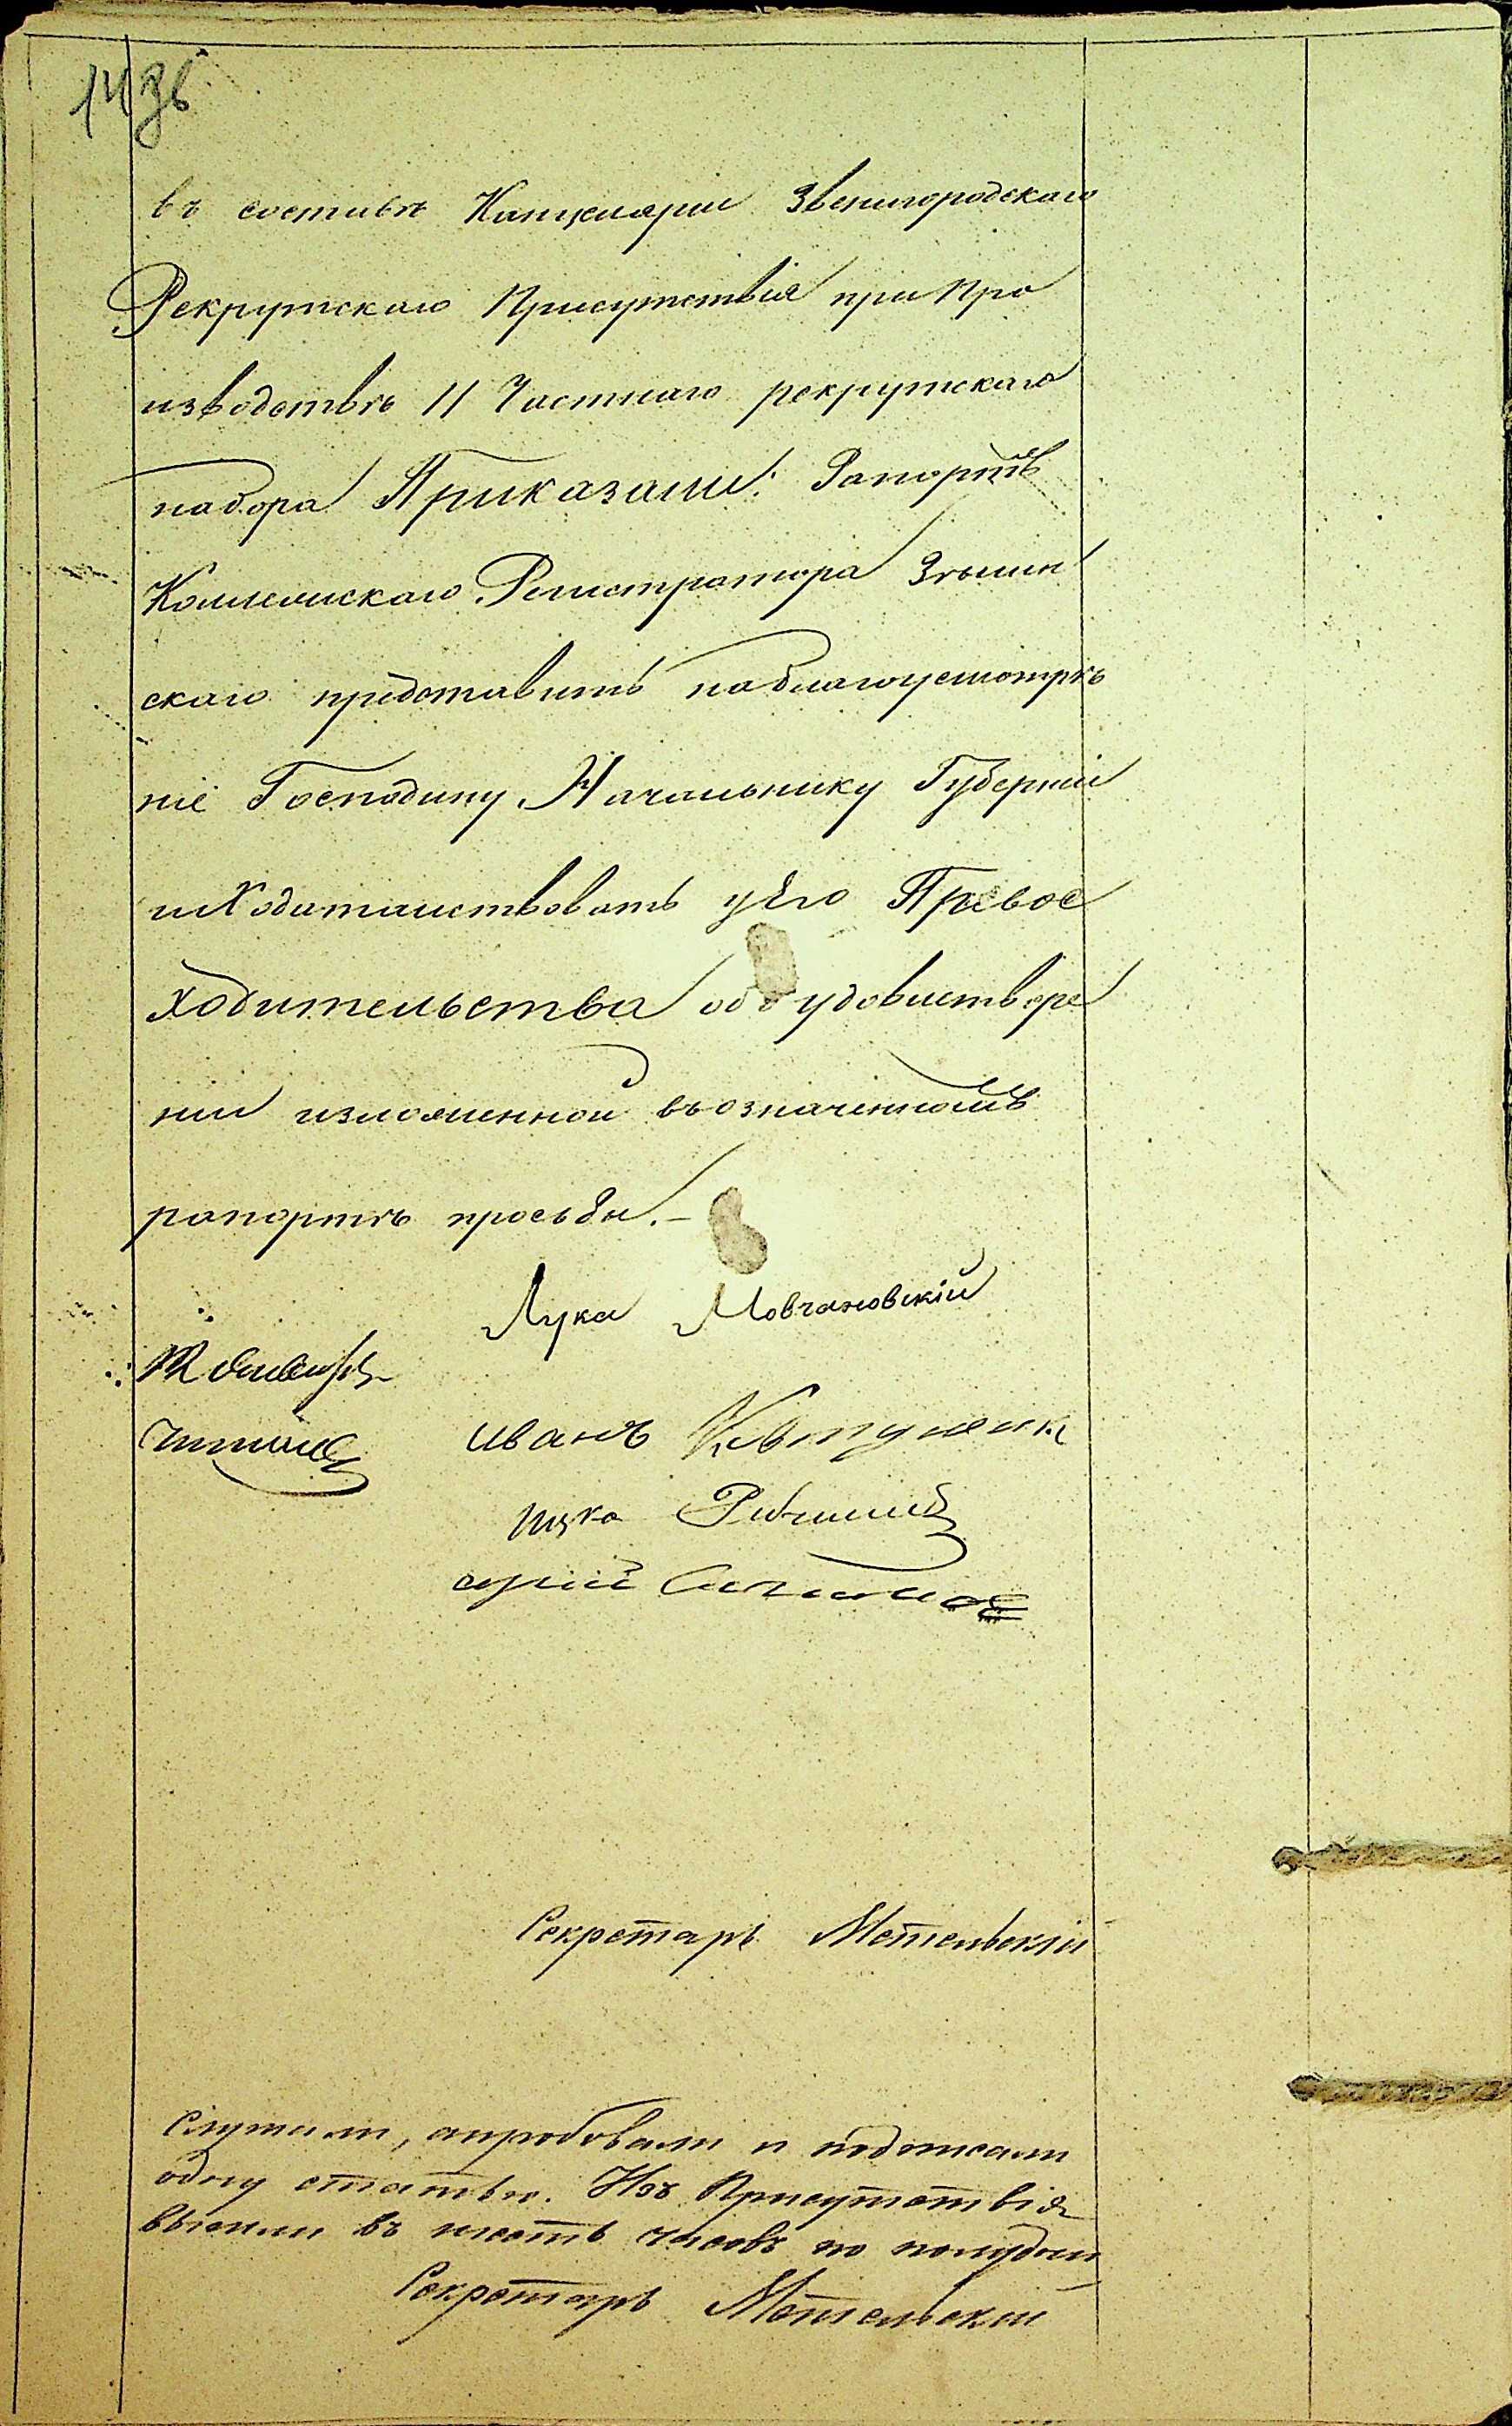 14 зв
въ составѣ Канцеляріи Звенигородскаго
Рекрутскаго Присутствія при про
изводствѣ 11 Частнаго рекрутскаго
набора Приказали: Рапортъ
Коллежскаго Регистратора
скаго представить на благоусмотрѣ
ніе Господину Начальнику Губерніи
и Ходатайствовать у Его Превос
ходительства объ удовлетворе
ніи изложенной въ означенномъ
рапортѣ просьбы.-
Лука Мовчановскій
Иванъ
Секретарь Метельскій
Слушали, апробовали и подписали
одну статью. Изъ Присутствія
вышли въ шесть часовъ по полудни
Секретарь Метельскій